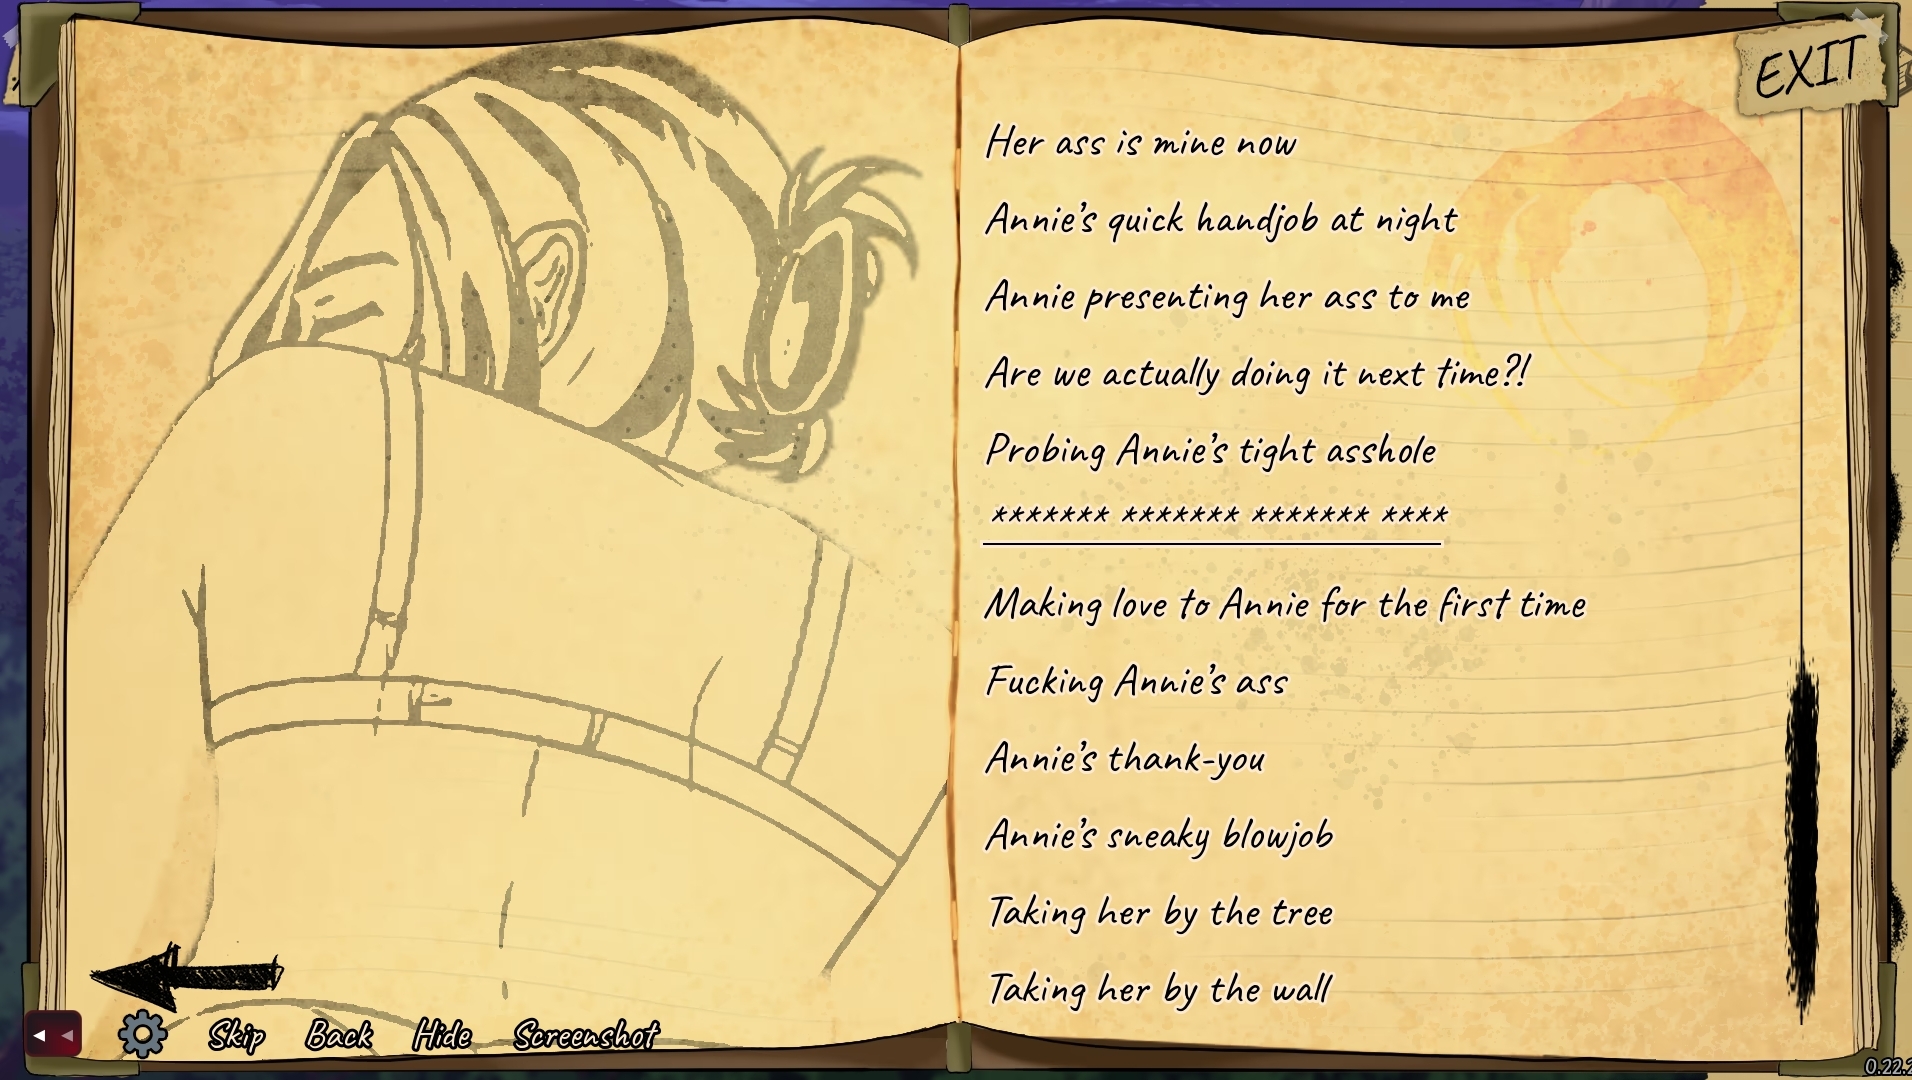 EXIT
Her ass is mine now
Annie's quick handjob at night
Annie presenting her ass to me
Are we actually doing it next time?!
Probing Annie's tight asshole
******* ******* ******* ****
Making love to Annie for the first time
Fucking Annie's ass
Annie's thank-you
Annie's sneaky blowjob
Taking her by the tree
Taking her by the wall
Skip Back Hide Screenshot